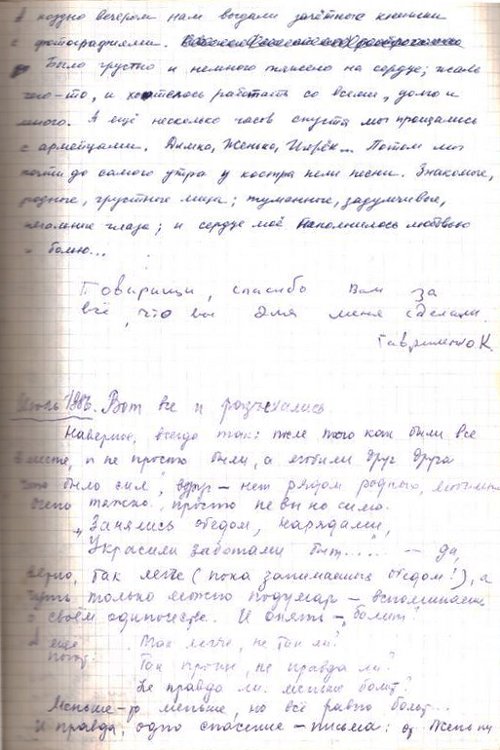 А поздно вечером нам выдали зачётные книжки
с фотографиями.
Было грустно и немного тяжело на сердце; жаль
чего-то, и хотелось работать со всеми, долго и
много. А ещё несколько часов спустя мы прощались
с армейцами. Димка, Женька, Игорёк... Потом мы
почти до самого утра у костра пели песни. Знакомые,
родные, грустные лица; туманные, задумчивые,
печальные глаза; и сердце моё наполнилось любовью
и болью...
Товарищи, спасибо Вам за
всё, что вы для меня сделали.
Гавриленко К.
Июль 1986. Вот все и разъехались.
Наверное, всегда так: после того как были все
вместе, и не просто были, а любили друг друга
что было сил, вдруг – нет рядом родного, любимого
очень тяжко, просто невыносимо.
"Занялись обедом, нарядами,
Украсили заботами быт....." — да,
верно, так легче (пока занимаешься обедом!), а
чуть только можно подумать – вспоминаешь
о своём одиночестве. И опять – болит!
А ещё Так легче, не так ли?
пому: Так проще, не правда ли?
Не правда ли, меньше болит?
Меньше-то меньше, но всё равно болит...
И правда, одно спасение – письма: от Женьки